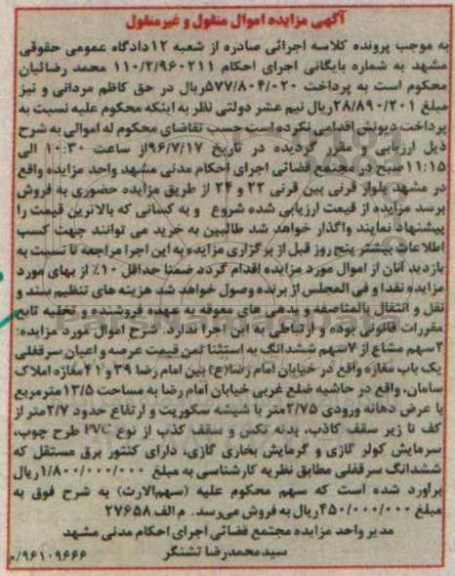 آگهی مزایده اموال منقول و غیرمنقول
به موجب پرونده کلاسه اجرائی صادره از شعبه ۱۲دادگاه عمومی حقوقی
مشهد به شماره بایگانی اجرای احکام ۱۱۰/۲/۹۶۰۲۱۱ محمد رضائیان
محکوم است به پرداخت ۵۷۷/۸۰۴/۰۲۰ریال در حق کاظم مردانی و نیز
مبلغ ۲۸/۸۹۰/۲۰۱ریال نیم عشر دولتی نظر به اینکه محکوم علیه نسبت به
پرداخت دیونش اقدامی نکرده است حسب تقاضای محکوم له اموالی به شرح
ذیل ارزیابی و مقرر گردیده در تاریخ ۹۶/۷/۱۷از ساعت ۱۰:۳۰ الی
۱۱:۱۵صبح در مجتمع قضائی اجرای احکام مدنی مشهد واحد مزایده واقع
در مشهد بلوار قرنی بین قرنی ۲۲ و ۲۴ از طریق مزایده حضوری به فروش
برسد مزایده از قیمت ارزیابی شده شروع و به کسانی که بالاترین قیمت را
پیشنهاد نمایند واگذار خواهد شد طالبین به خرید می توانند جهت کسب
اطلاعات بیشتر پنج روز قبل از برگزاری مزایده به این اجرا مراجعه تا نسبت به
بازدید آنان از اموال مورد مزایده اقدام گردد ضمنا حداقل ۱۰٪ از بهای مورد
مزایده نقدا و فی المجلس از برنده وصول خواهد شد هزینه های تنظیم سند و
نقل و انتقال بالمناصفه و بدهی های معوقه به عهده فروشنده و تخلیه تابع
مقررات قانونی بوده و ارتباطی به این اجرا ندارد. شرح اموال مورد مزایده:
۲سهم مشاع از ۷سهم ششدانگ به استثنا ثمن قیمت عرصه و اعیان سرقفلی
یک باب مغازه واقع در خیابان امام رضا(ع) بین امام رضا ۳۹ و ۴۱مغازه املاک
سامان، واقع در حاشیه ضلع غربی خیابان امام رضا به مساحت ۱۳/۵مترمربع
با عرض دهانه ورودی ۲/۷۵متر با شیشه سکوریت و ارتفاع حدود ۲/۷متر از
کف تا زیر سقف کاذب، بدنه تکس و سقف کذب از نوع PVC طرح چوب،
سرمایش کولر گازی و گرمایش بخاری گازی، دارای کنتور برق مستقل که
ششدانگ سرقفلی مطابق نظریه کارشناسی به مبلغ ۱/۸۰۰/۰۰۰/۰۰۰ریال
برآورد شده است که سهم محکوم علیه (سهم الارث) به شرح فوق به
مبلغ ۴۵۰/۰۰۰/۰۰۰ریال به فروش می رسد. م الف ۲۷۶۵۸
مدیر واحد مزایده مجتمع قضائی اجرای احکام مدنی مشهد
سیدمحمدرضا تشنگر
/۹۶۱۰۹۶۶۶